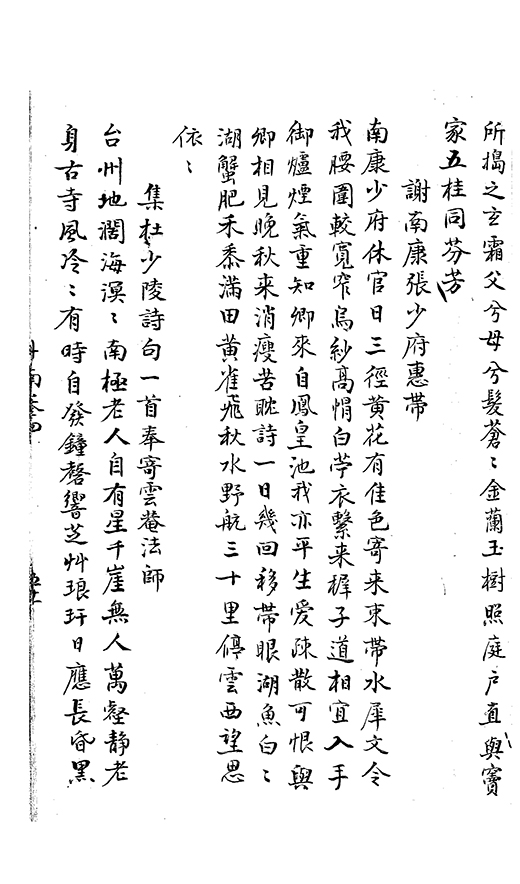 所搗之玄霜父兮母兮髮蒼〻金蘭玉樹照庭户直與竇
家五桂同芬芳
謝南康張少府惠帶
南康少府休官日三徑黄花有佳色寄来束帶水犀文令
我腰圍較寬窄烏紗髙㡌白苧衣繫来穉子道相宜入手
御爐煙氣重知卿來自鳳皇池我亦平生愛疎散可恨與
卿相見晚秋来消瘦苦眈詩一日幾回移帶眼湖魚白〻
湖蟹肥禾黍滿田黄雀飛秋水野航三十里停雲西望思
依〻
集杜少陵詩句一首奉寄雲菴法師
台州地濶海溟〻南極老人自有星千崖無人萬壑静老
身古寺風冷〻有時自發鐘磬響芝艸琅玕日應長昏黑